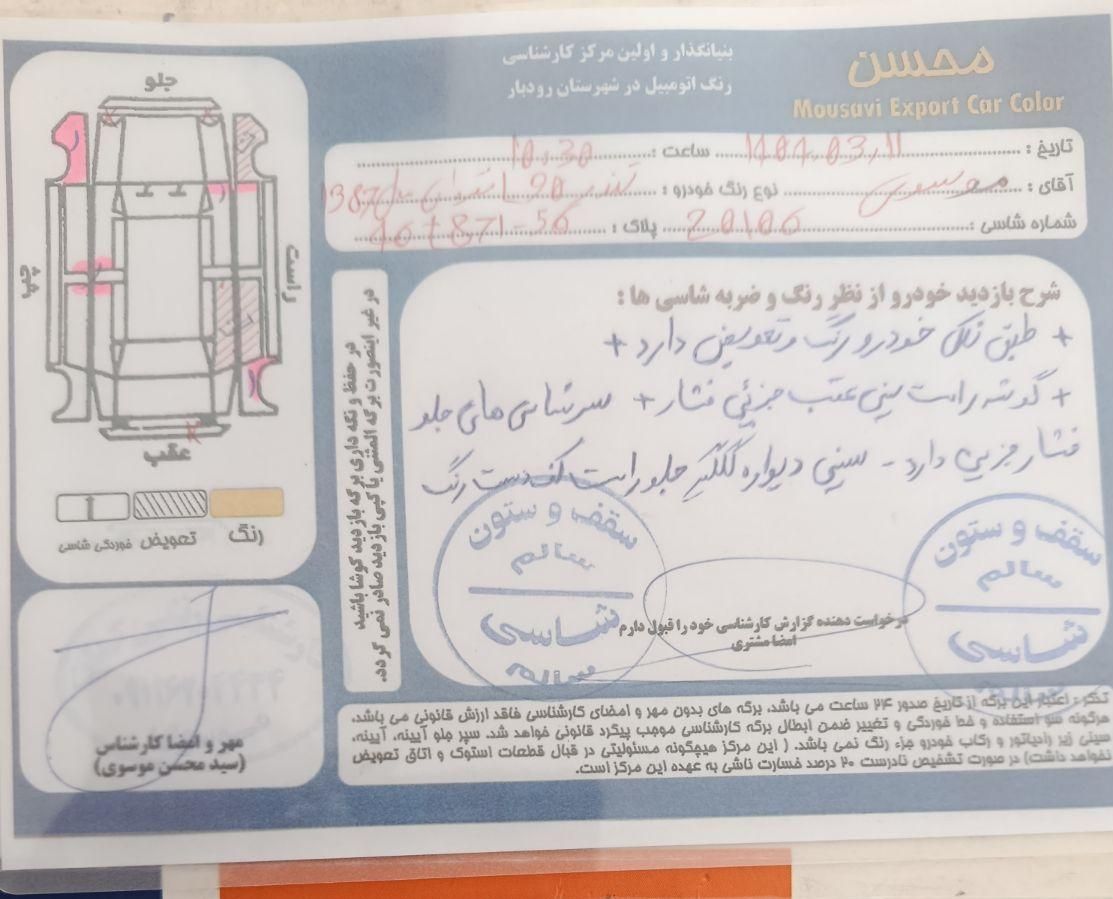 محسن
Mousavi Export Car Color
بنیانگذار و اولین مرکز کارشناسی
رنگ اتومبیل در شهرستان رودبار
تاریخ : 1404.03.11 ساعت : 10.30
آقای : موسوی نوع رنگ خودرو : تندر 90 مدل 1387
شماره شاسی : 20106 پلاک : 871-56
شرح بازدید خودرو از نظر رنگ و ضربه شاسی ها :
+ طبق شکل خودرو رنگ و تعویض دارد +
+ گوشه راست سینی عقب جزئی فشار + سرشاسی های جلو
فشار جزیی دارد - سینی دیواره گلگیر جلو راست لکه دست رنگ
سقف و ستون
سالم
شاسی
سالم
سقف و ستون
سالم
شاسی
درخواست دهنده گزارش کارشناسی خود را قبول دارم
امضا مشتری
در حفظ و نگه داری برگه بازدید کوشا باشید
در غیر اینصورت برگه المثنی یا کپی بازدید صادر نمی گردد.
جلو
چپ
راست
عقب
رنگ
تعویض
خوردگی شاسی
مهر و امضا کارشناس
(سید محسن موسوی)
تذکر: اعتبار این برگه از تاریخ صدور ۲۴ ساعت می باشد. برگه های بدون مهر و امضای کارشناسی فاقد ارزش قانونی می باشد.
هرگونه سو استفاده و خط خوردگی و تغییر ضمن ابطال برگه کارشناسی موجب پیگرد قانونی خواهد شد. سپر جلو آیینه، آیینه،
سینی زیر رادیاتور و رکاب خودرو جزء رنگ نمی باشد. ( این مرکز هیچگونه مسئولیتی در قبال قطعات استوک و اتاق تعویض
نخواهد داشت) در صورت تشخیص نادرست ۲۰ درصد خسارت ناشی به عهده این مرکز است.